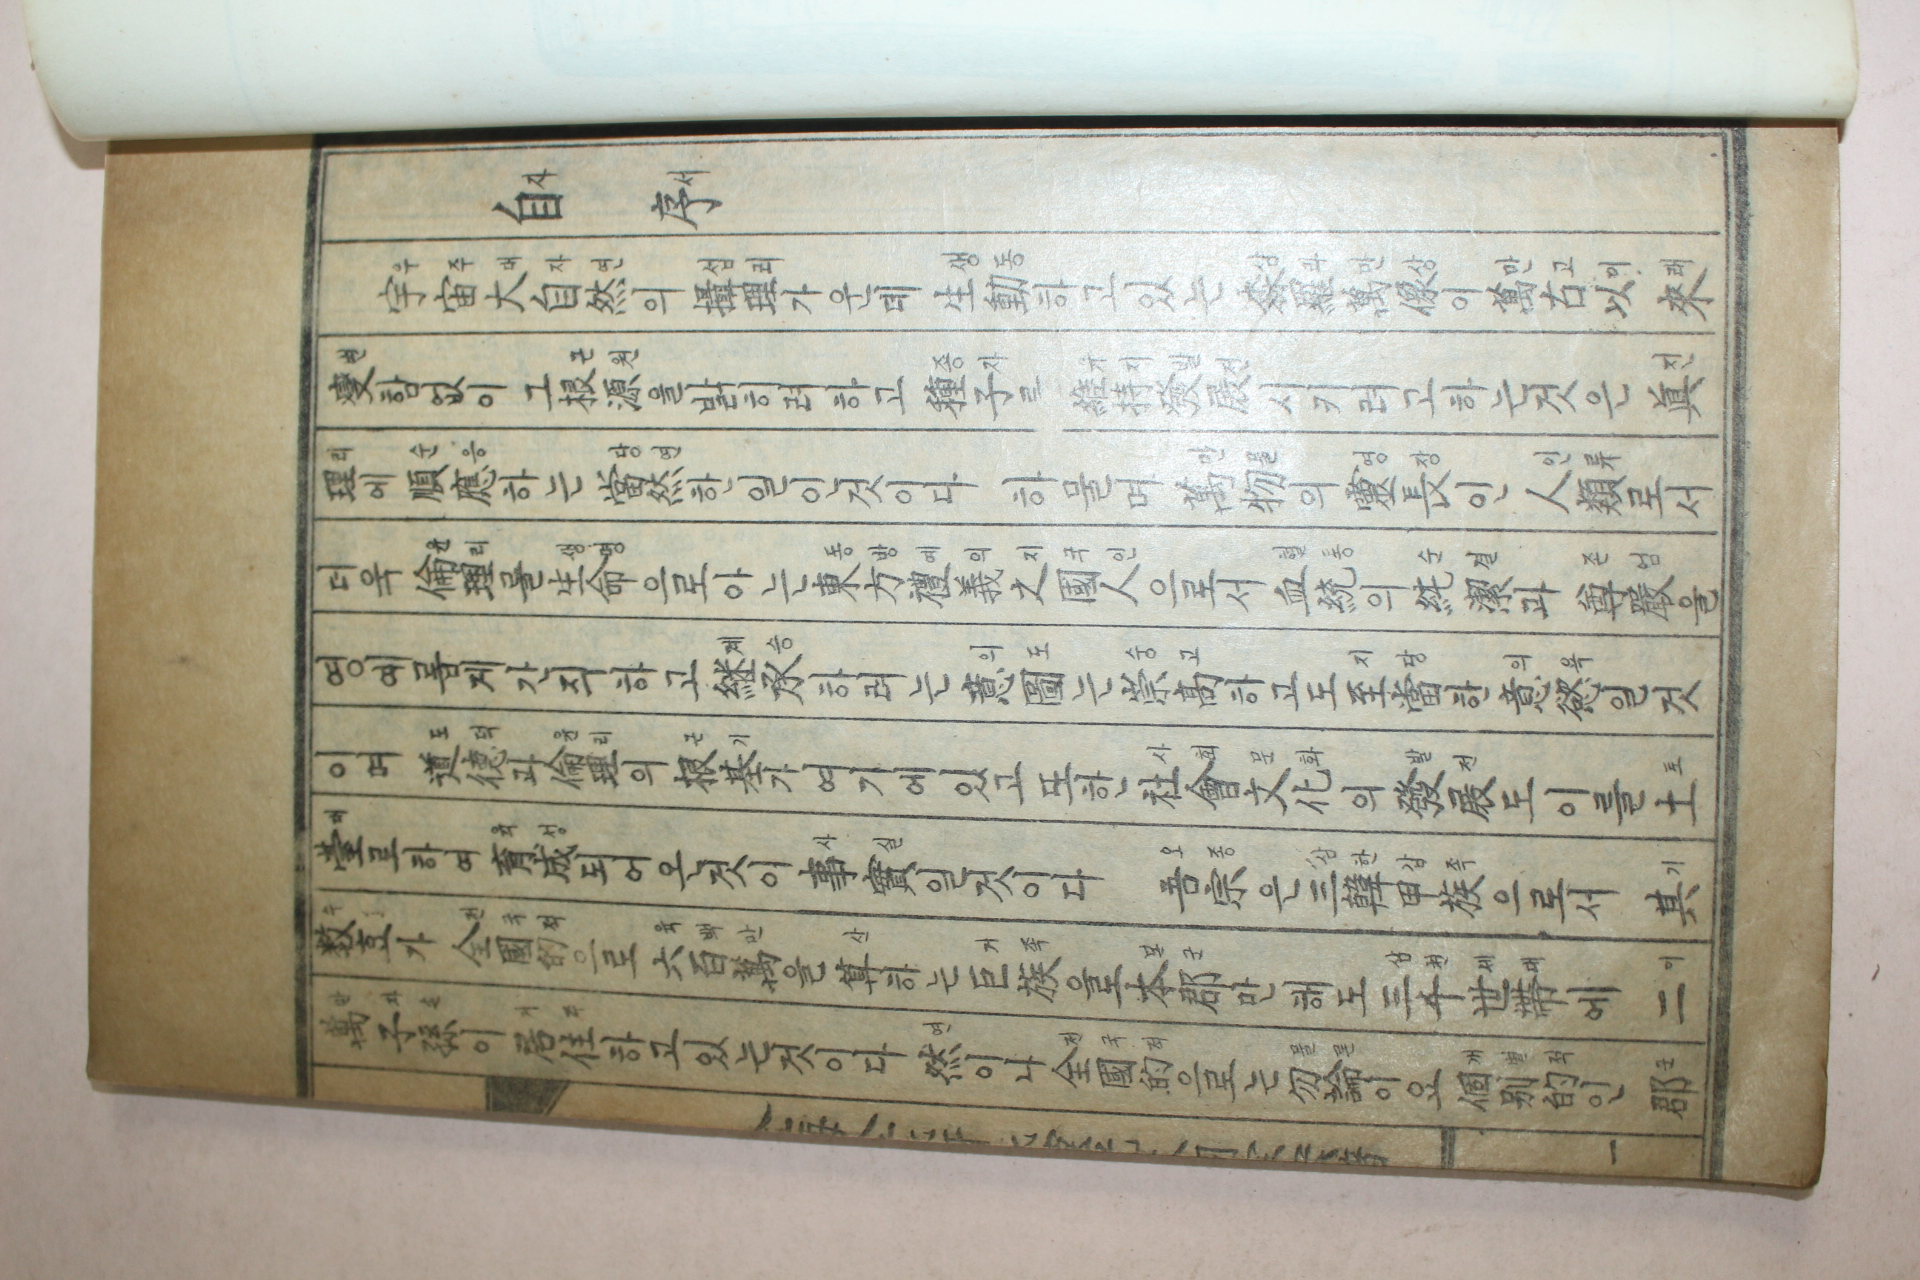 自序
宇宙大自然의 攝理가운데 生動하고있는 森羅萬像이 萬古以來
變함없이 그根源을밝히려하고 種子를 維持發展시키려고하는것은 眞
理에 順應하는 當然한일이것이다 하물며 萬物의 靈長인 人類로서
더욱 倫理를生命으로아는東方禮義之國人으로서 血統의 純潔과 尊嚴을
영예롭게간직하고繼承하려는意圖는崇高하고도至當한意慾일것
이며 道德과倫理의 根基가여기에있고또한社會文化의發展도이를土
臺로하여 育成되어온것이 事實일것이다 吾宗은三韓甲族으로서 其
數효가 全國的으로六百萬을算하는巨族을로本郡만해도三千世帶에 二
萬子孫이 居住하고있는것이다 然이나 全國的으로는勿論이오 個別的인 郡
一